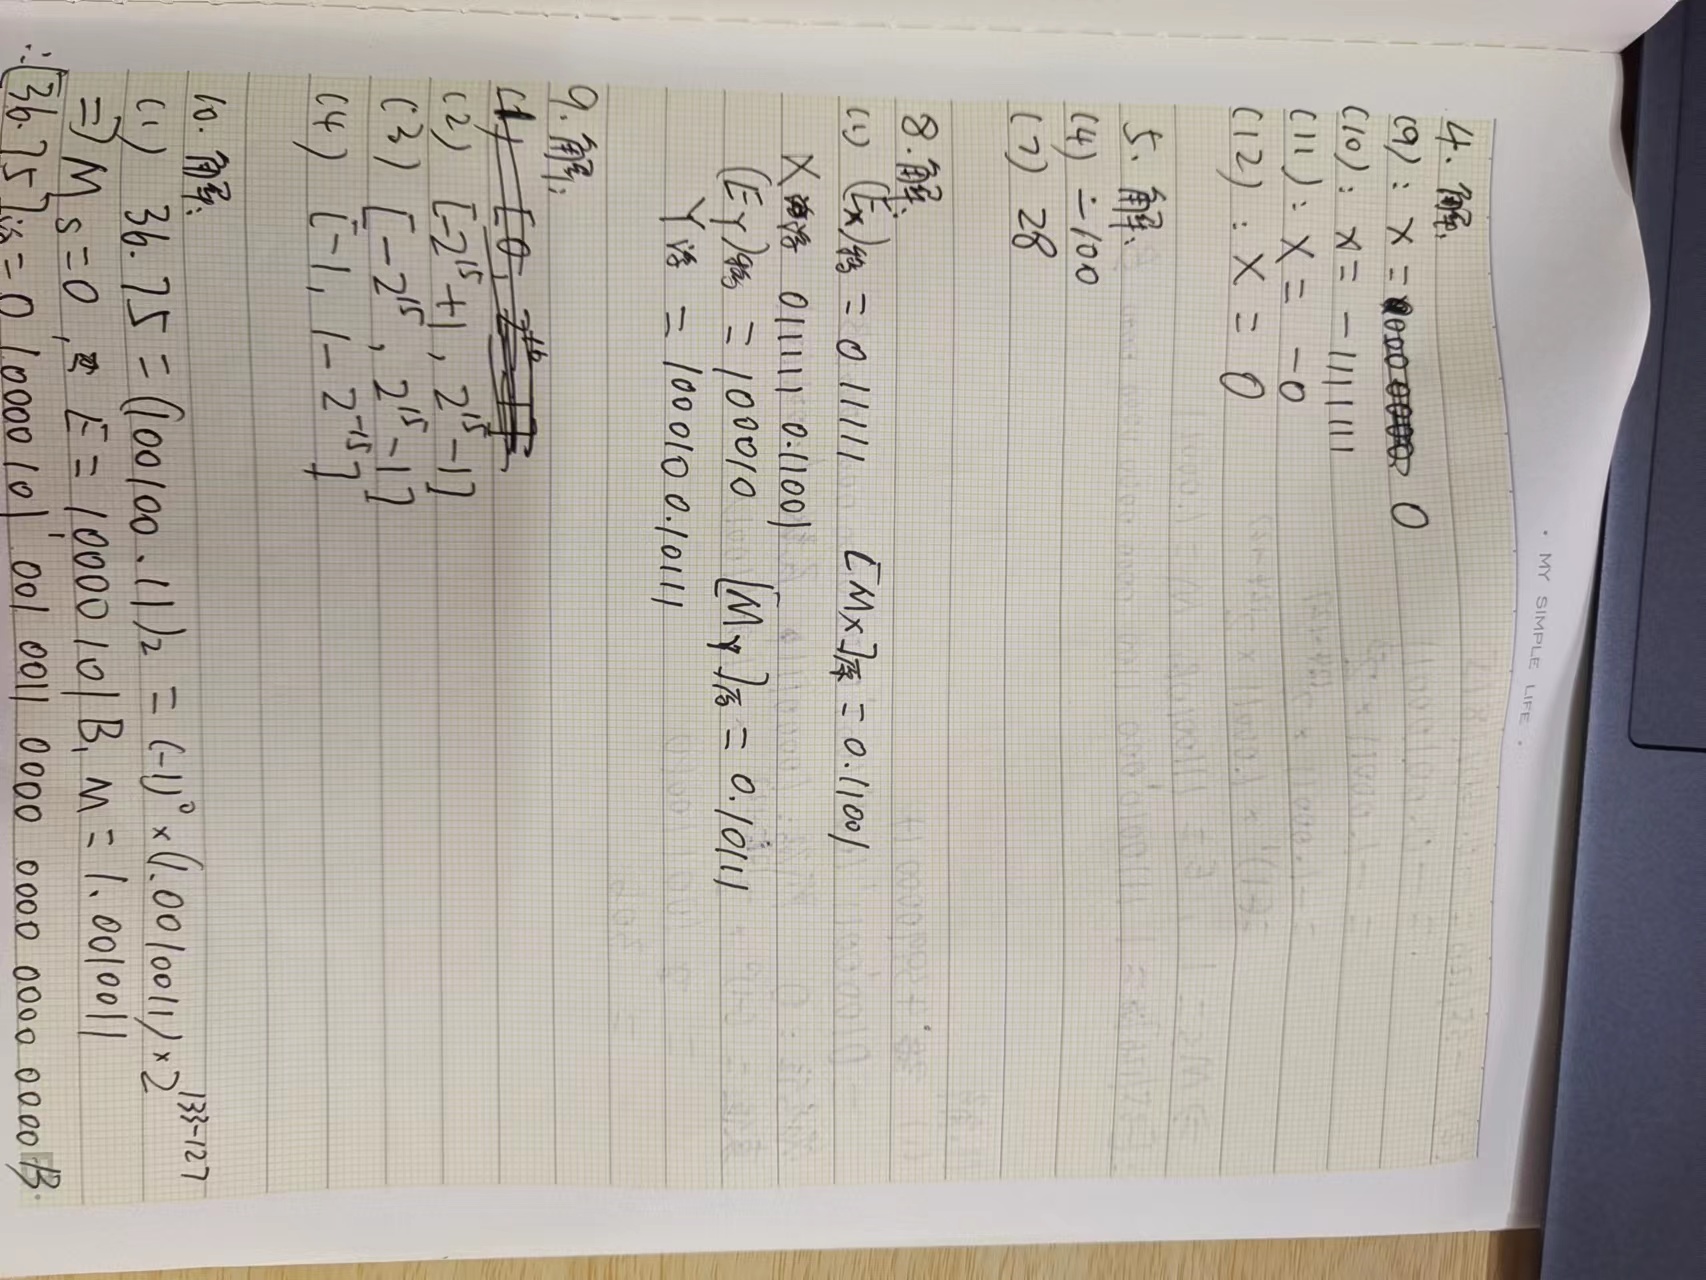 · MY SIMPLE LIFE ·
4. 解:
(9): x = 0
(10): x = -1111111
(11): x = -0
(12): x = 0
5. 解:
(4) -100
(7) 28
8. 解:
(1) (Ex)移 = 0 11111 [Mx]原 = 0.11001
X浮 011111 0.11001
(EY)移 = 100010 [MY]原 = 0.10111
Y浮 = 100010 0.10111
9. 解:
(2) [-2^15+1, 2^15-1]
(3) [-2^15, 2^15-1]
(4) [-1, 1-2^-15]
10. 解:
(1) 36.75 = (100100.11)2 = (-1)^0 × (1.0010011) × 2^133-127
=> Ms=0, E = 10000101B, M = 1.0010011
∴ [36.75]浮 = 0 10000101 001 0011 0000 0000 0000 0000B.